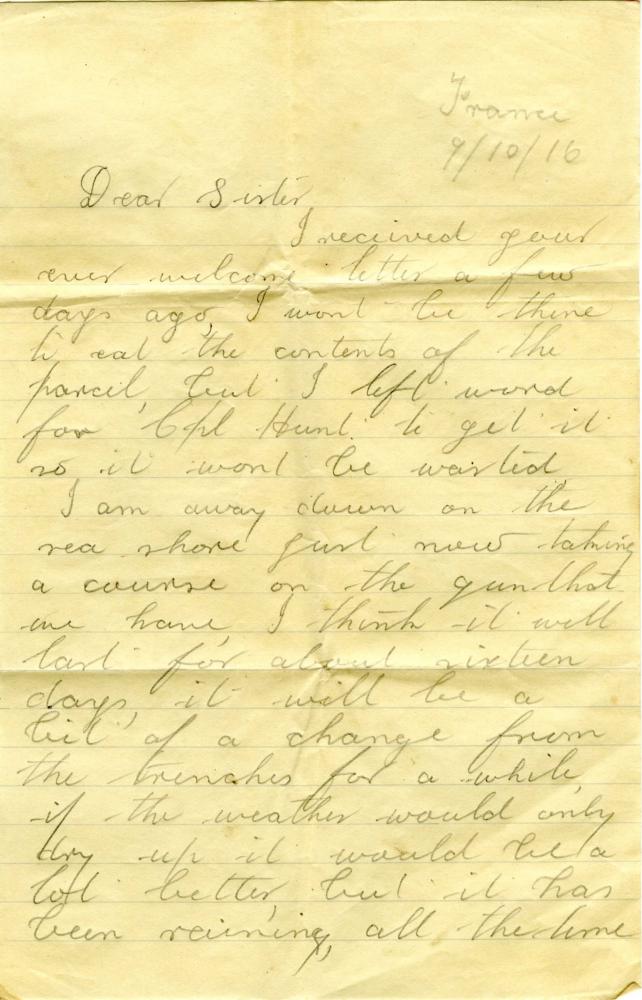 France
9/10/16
Dear Sister,
I received your
ever welcome letter a few
days ago, I wont be there
to eat the contents of the
parcel, but I left word
for Cpl Hunt to get it
so it wont be wasted,
I am away down on the
sea shore just now taking
a course on the gun that
we have, I think it will
last for about sixteen
days, it will be a
bit of a change from
the trenches for a while,
if the weather would only
dry up it would be a
lot better, but it has
been raining, all the time